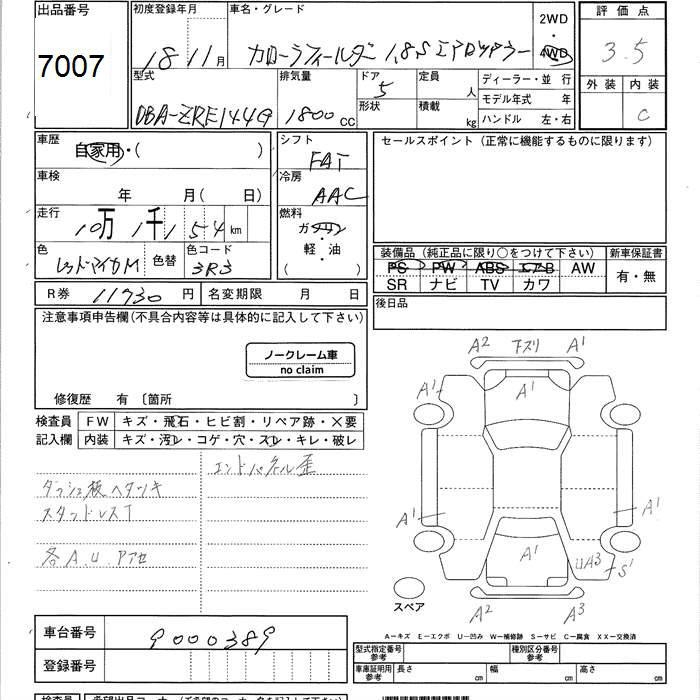 出品番号
7007
初度登録年月
18 11月
車名・グレード
カローラフィールダー 1.8S エアロツアラー
2WD
4WD
評価点
3.5
型式
DBA-ZRE144G
排気量
1800cc
ドア
5
形状
定員
人
積載
kg
ディーラー・並行
モデル年式 年
ハンドル 左・右
外装
内装
C
車歴
自家用・( )
シフト
FAT
セールスポイント（正常に機能するものに限ります）
車検
年 月( 日)
冷房
AAC
走行
10万 1千 154km
燃料
ガソリン
軽・油
( )
色
レッドマイカM
色替
色コード
3R3
装備品（純正品に限り○をつけて下さい）
新車保証書
PS PW ABS エアB AW
SR ナビ TV カワ
有・無
R券 11930円
名変期限 月 日
後日品
注意事項申告欄（不具合内容等は具体的に記入して下さい）
ノークレーム車
no claim
修復歴 有 〔箇所 〕
検査員
記入欄
FW キズ・飛石・ヒビ割・リペア跡・×要
内装 キズ・汚レ・コゲ・穴・スレ・キレ・破レ
エンドパネル歪
ダッシュ板ヘタツキ
スタッドレスT
各A.U.アセ
A2 下スリ A1
A1 A1 A1
A1 A1
A1 UA3 S1
A2 A3
スペア
A－キズ E－エクボ U－凹み W－補修跡 S－サビ C－腐食 XX－交換済
車台番号
9000389
登録番号
型式指定番号
参考
種別区分番号
参考
車庫証明用
参考
長さ cm
幅 cm
高さ cm
検査員